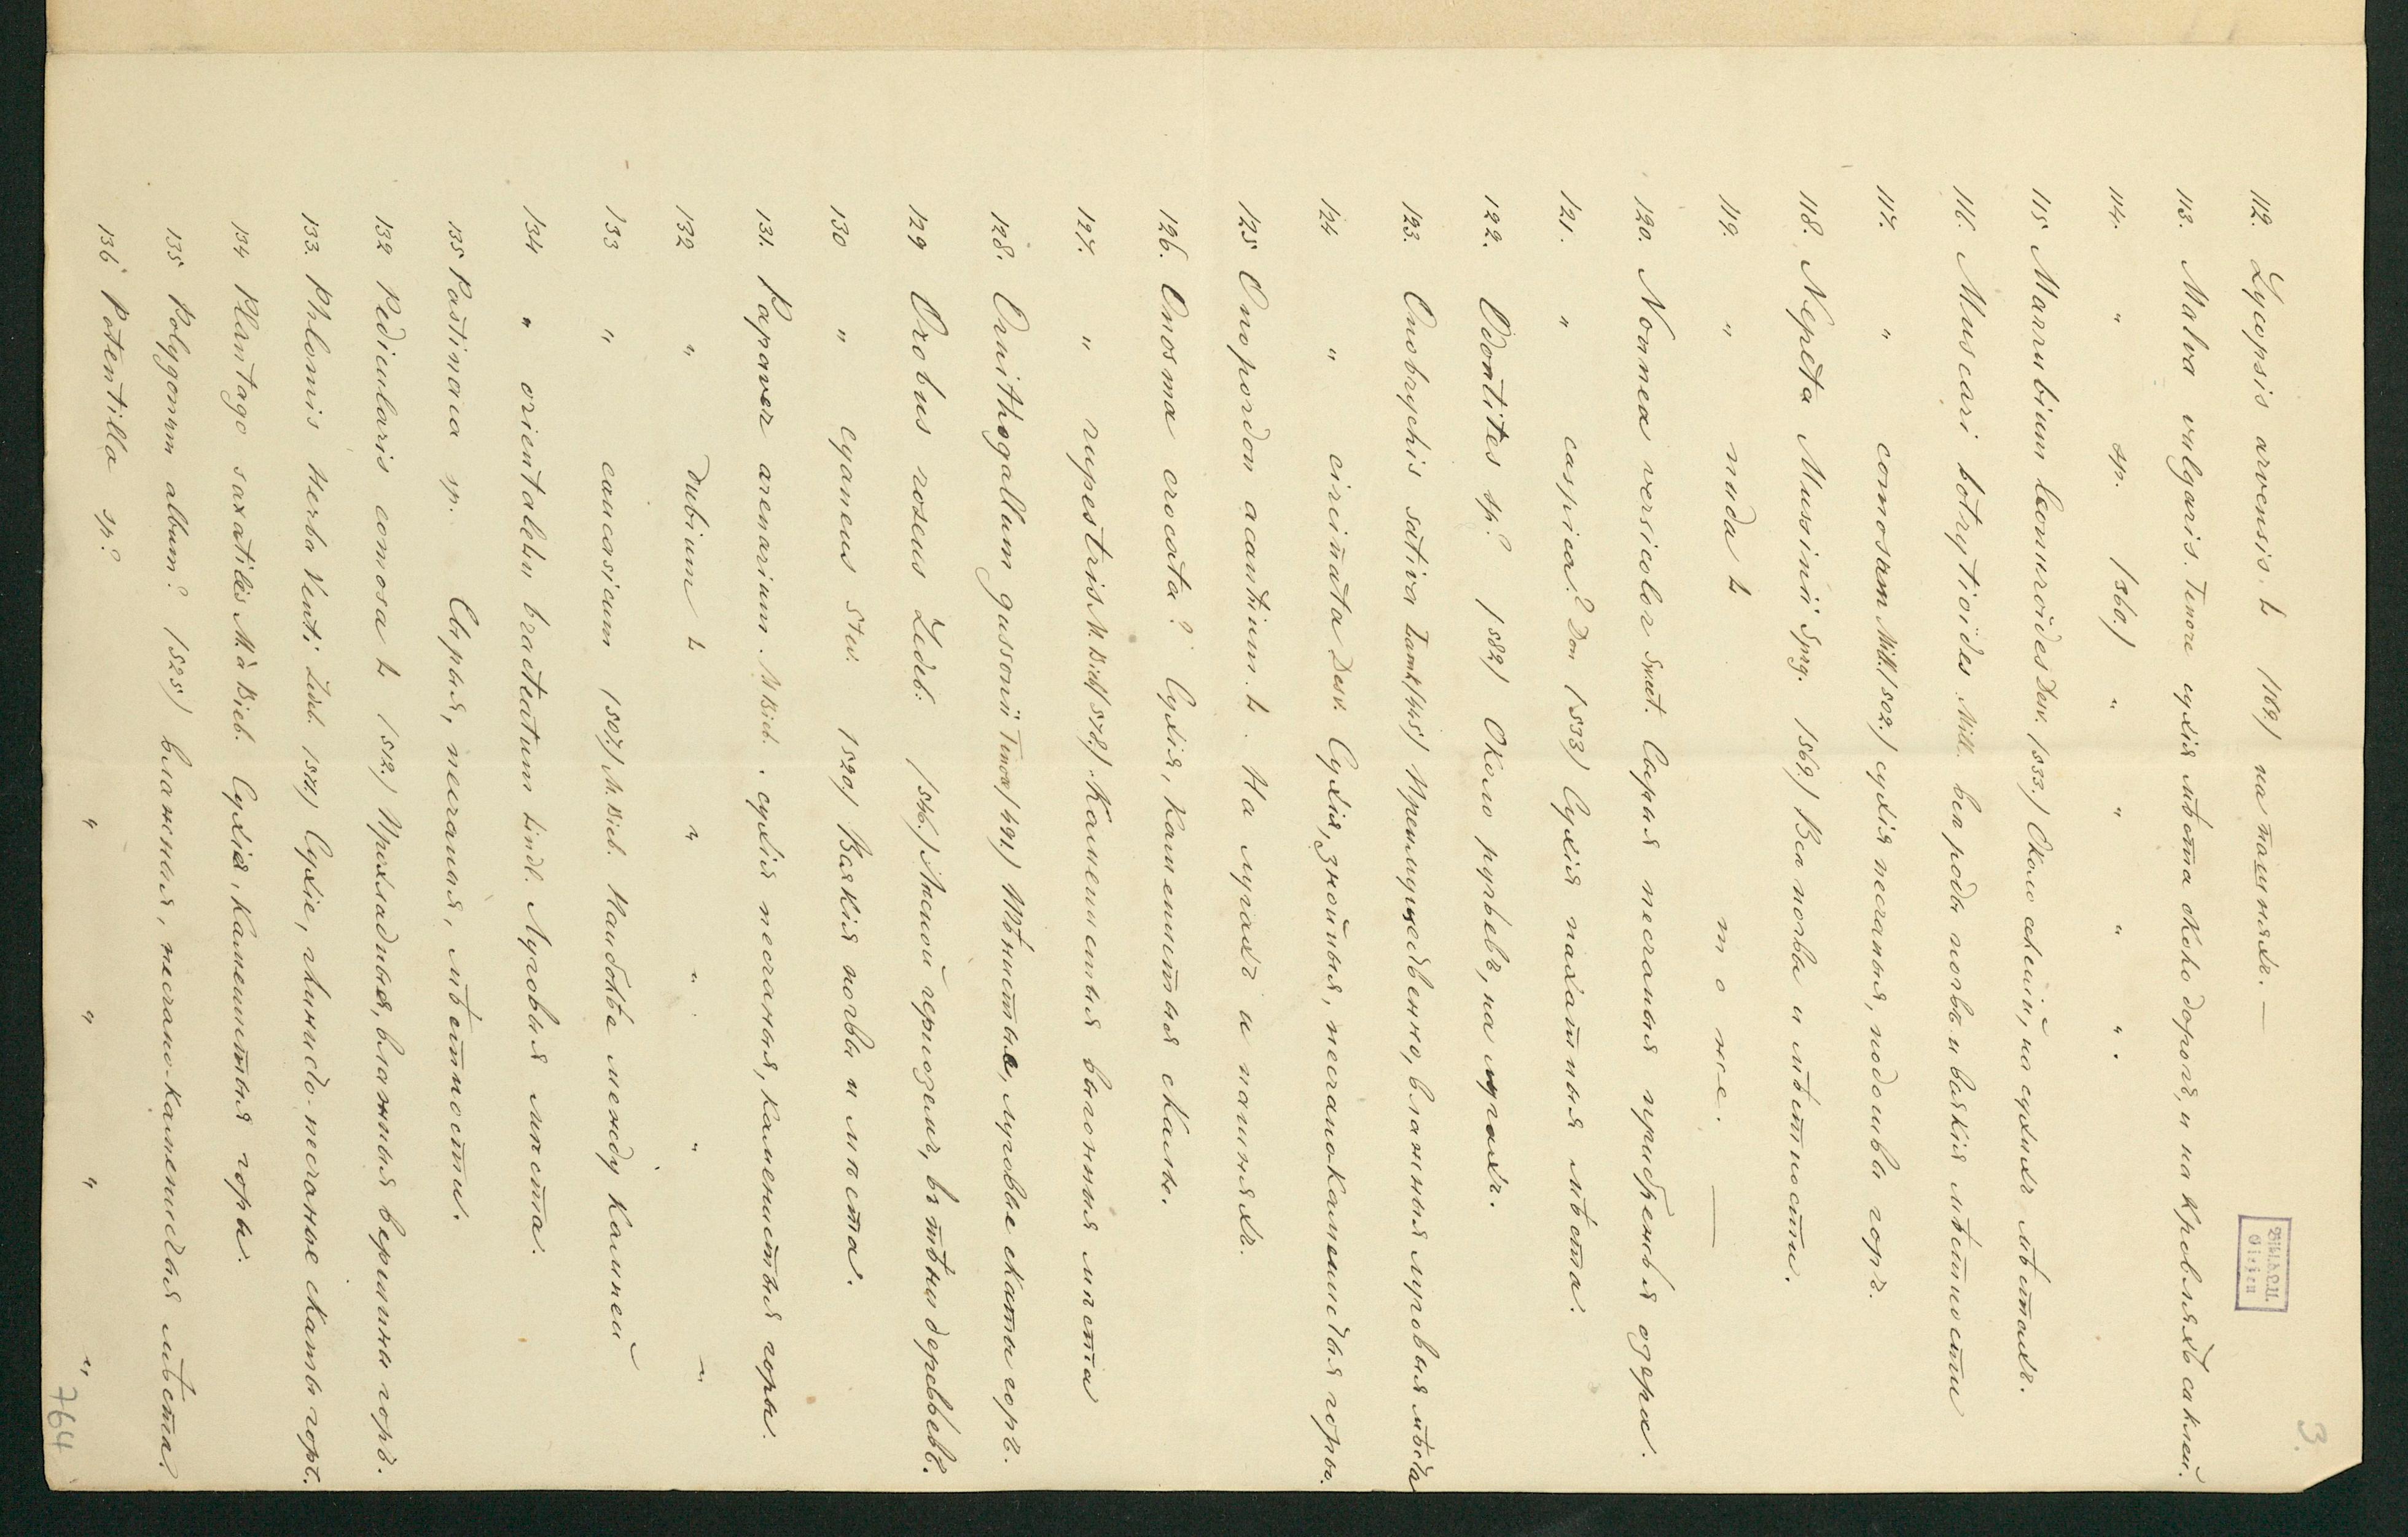 3.
Bibl. d. L. U.
Gießen
112. Lycopsis arvensis. L /169/ на пашняхъ. —
113. Malva vulgaris. Tenore сухія мѣста около дорогъ, и на кровляхъ саклей.
114. " " sp. /360/ " " " " .
115 Marrubium leonuroides Desv. /333./ Около селеній, на сухихъ мѣстахъ.
116. Muscari botrytioides Mill. вся роды почвъ и всякія мѣстности
117. " comosum Mill. /502./ сухія песчаныя, подошвы горъ.
118. Nepeta Mussinii Sprg. /569./ Вся почвы и мѣстности.
119. " nuda L тоже. —
120. Nonnea versicolor Sweet. Сырыя песчаныя прибрежья озера.
121. " caspica? Don /533/ Сухія пахатныя мѣста.
122. Odontites sp.? /582/ Около ручьевъ, на лугахъ.
123. Onobrychis sativa Lamk /445/ Преимущественно, влажныя луговыя мѣста
124 " circinata Desv. Сухія, знойныя, песчанокаменистыя горы.
125 Onopordon acantium. L. На лугахъ и пашняхъ.
126. Onosma crocata? Сухія, каменистыя скалы.
127. " rupestris M. Bieb /578/ Каменистыя выгонныя места
128. Ornithogallum gussonii Tenore /491/ Тѣнистые, луговые скаты горъ.
129 Orobus roseus Ledeb. /546./ Лѣсной черноземъ, въ тѣни деревьевъ.
130 " cyaneus Stev. /520/ Всякія почвы и места.
131. Papaver arenarium. M Bieb. . сухія песчаныя, каменистыя горы.
132 " dubium L " " " "
133 " caucasicum /507/ M. Bieb. Наибольѣ между камней
134 " orientaleln bracteatum Lindl. Луговыя места.
135 Pastinaca sp. Сырыя, песчаныя, мѣстности.
132 Pedicularis comosa L /512./ Прохладныя, влажныя вершины горъ.
133. Phlomis Herba Venti Ledeb. /571/ Сухіе, глинисто-песчаные скаты горъ.
134 Plantago saxatiles M. à Bieb. Сухія, каменистыя горы.
135 Polygonum album? /525/ влажныя, песчано-каменистыя мѣста.
136 Potentilla sp.? " " " "
764